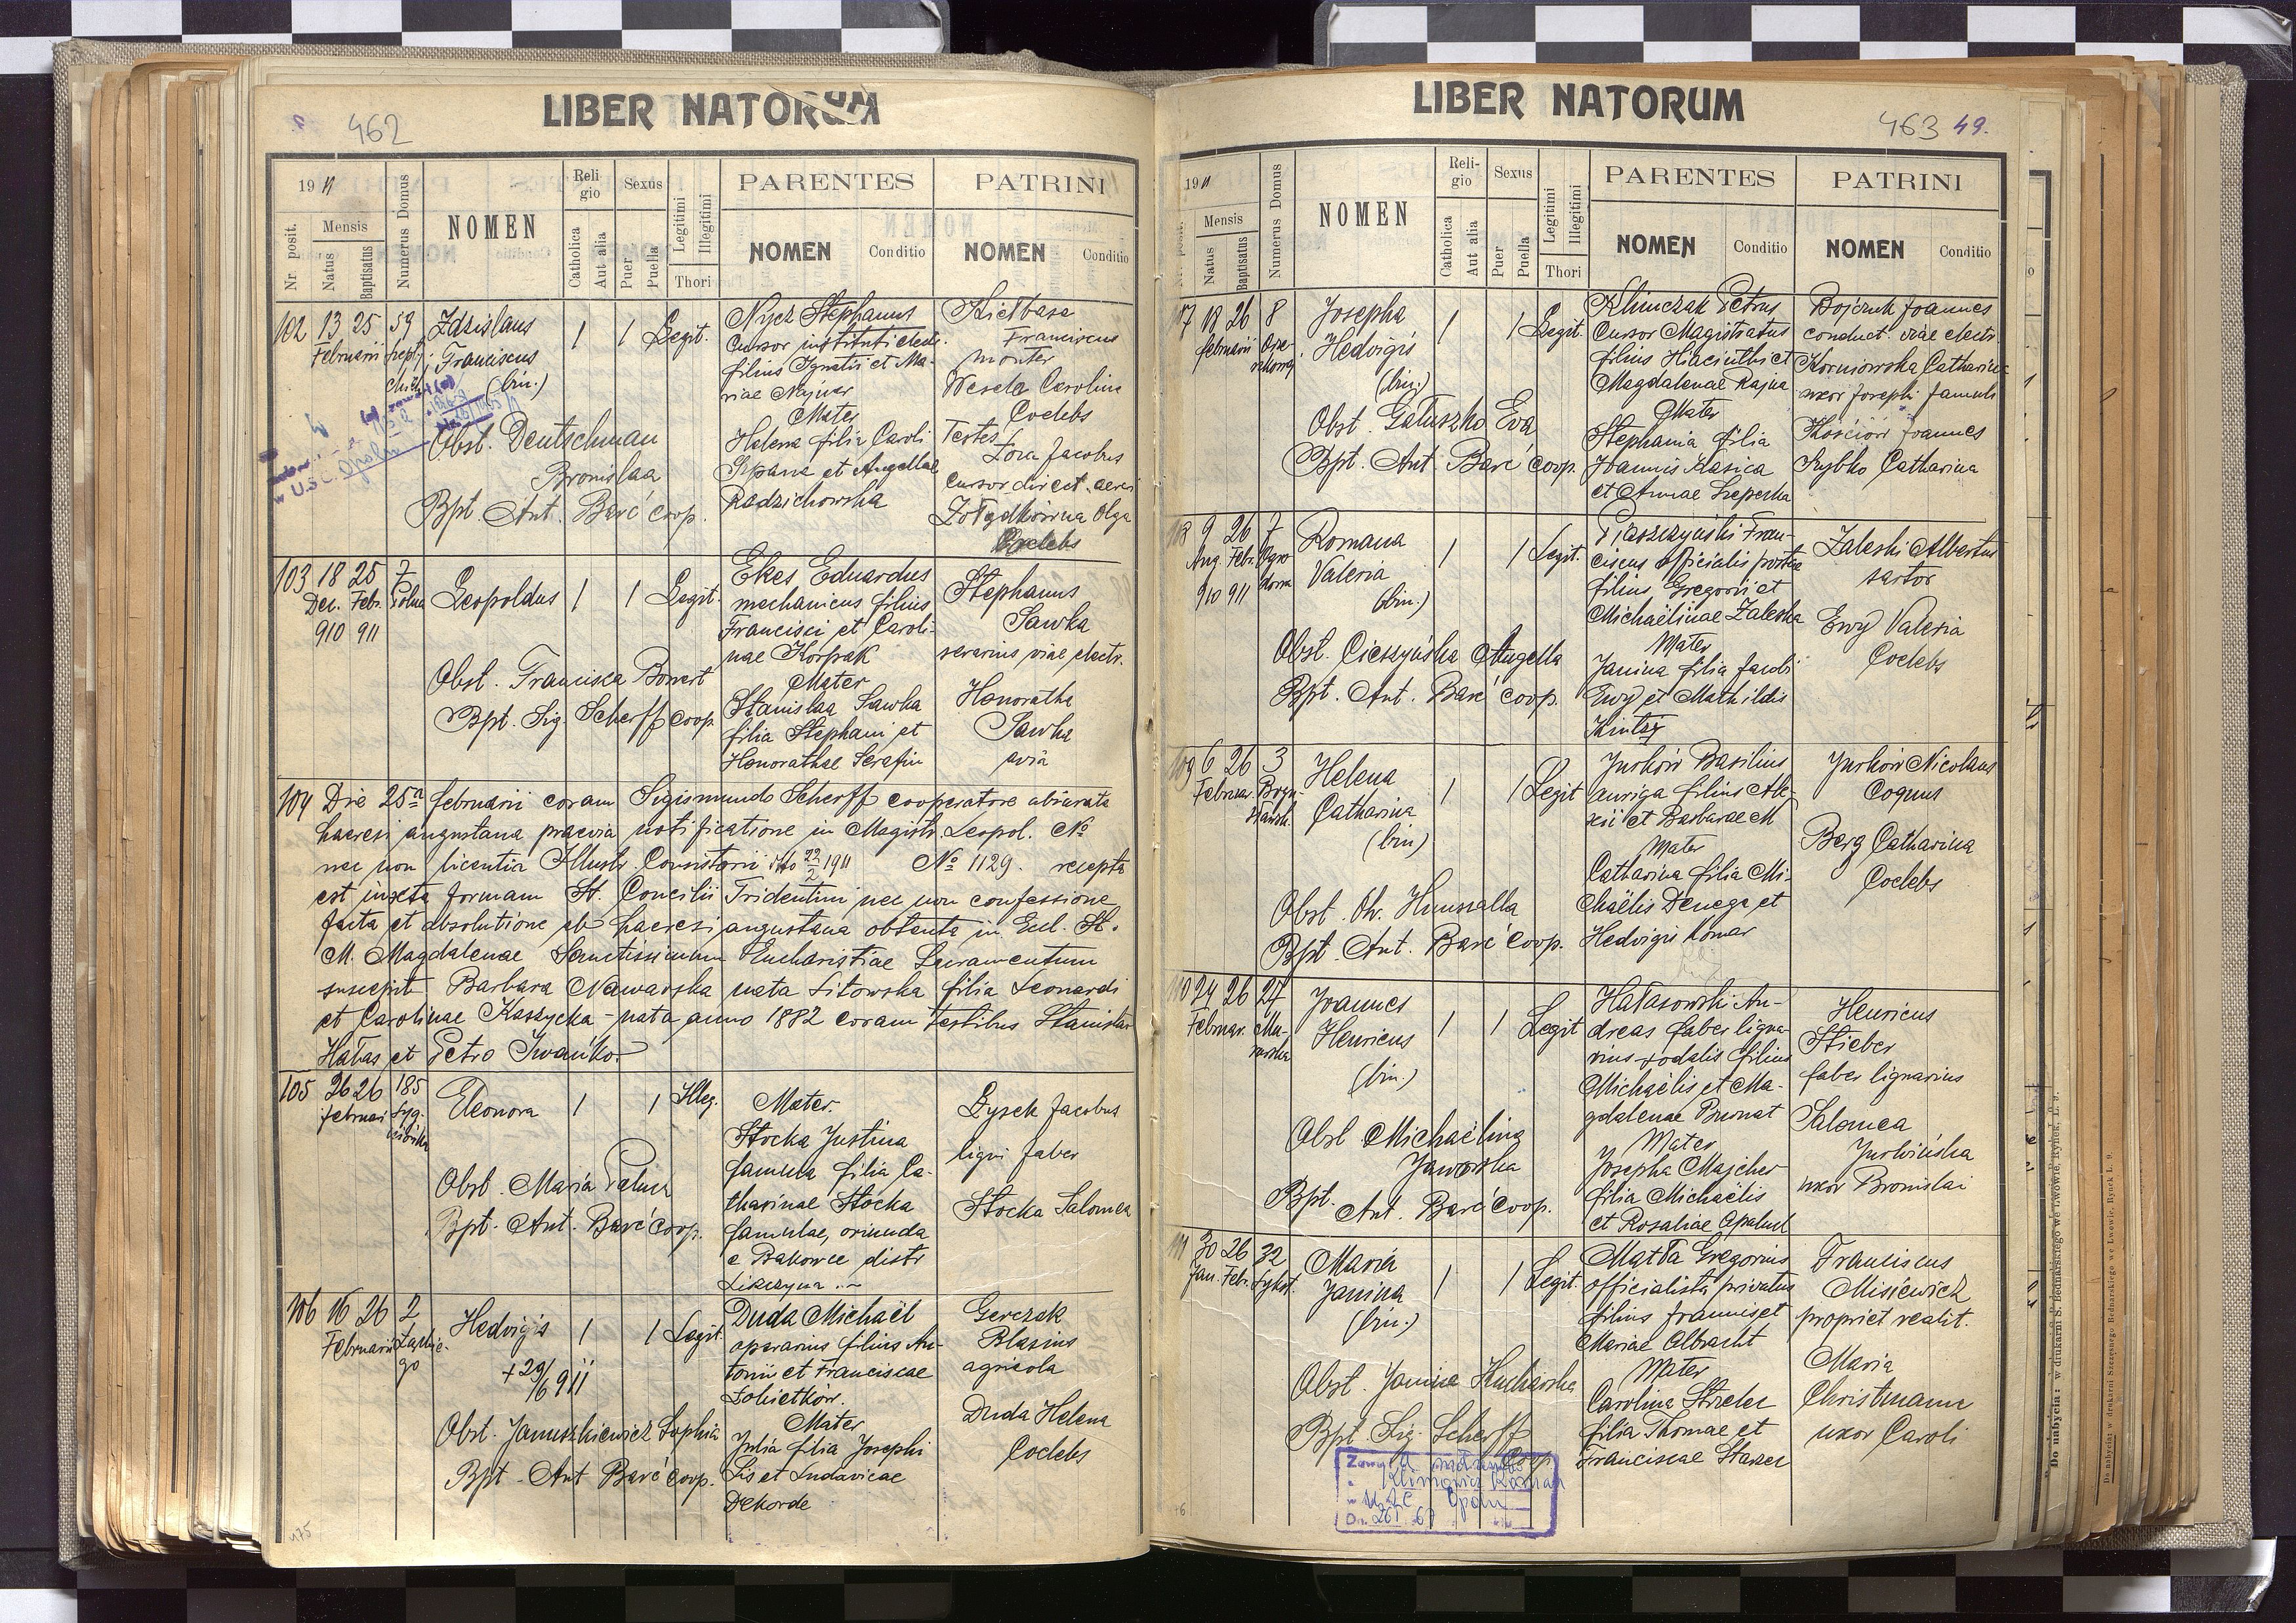 462
LIBER NATORUM
1911
Nr. posit.
Mensis
Natus
Baptisatus
Numerus Domus
NOMEN
Religio
Catholica
Aut alia
Sexus
Puer
Puella
Legitimi
Illegitimi
Thori
PARENTES
NOMEN Conditio
PATRINI
NOMEN Conditio
102 13 25 59
Februarii
Zdzislaus
Franciscus
(bin.)
1 1 Legit.
Obst. Deutschman
Bronislaa
Bpt. Ant. Barć coop.
Nycz Stephanus
Cursor instituti
filius Ignatii et Ma-
riae Najwer
Mater
Helena filia Caroli
et Angellae
Radzichowska
Kiełbasa
Franciscus
monter
Weseła Carolina
Coelebs
Testes
Lora Jacobus
Cursor direct.
Olga
Coelebs
103 18 25 7
Dec. Febr. Polna
910 911
Leopoldus
1 1 Legit.
Obst. Francisca
Bpt. Sig. Scherff coop.
Ekes Eduardus
mechanicus filius
Francisci et Caroli-
nae Korpak
Mater
Stanislaa Sawka
filia Stephani et
Honorathae Serafin
Stephanus
Sawka
viae electr.
Honoratha
Sawka
avia
104 Die 25a februarii coram Sigismundo Scherff cooperatore abiurata
haeresi augustana praevia notificatione in Magistr. Leopol. No
nec non licentia Illustr. Consistorii dto 22/2 1911 No 1129. recepta
est iuxta formam St. Concilii Tridentini nec non confessione
facta et absolutione ab haeresi augustana obtenta in Eccl. St.
M. Magdalenae Sanctissimum Eucharistiae Sacramentum
suscepit Barbara Nawarska nata Litowska filia Leonardi
et Carolinae Kaszycka - nata anno 1882 coram testibus Stanislao
Hałas et Petro Iwańko
105 26 26 185
februar
Eleonora
1 1 Illeg.
Obst. Maria
Bpt. Ant. Barć coop.
Mater.
Stocka Justina
famula filia Ca-
tharinae Stocka
famulae, oriunda
e Bakowce distr
Zysek Jacobus
ligni faber
Stocka Salomea
106 16 26 2
Februarii
Hedvigis
+ 29/6 911
1 1 Legit.
Obst. Januszkiewicz Sophia
Bpt. Ant Barć coop.
Duda Michaël
operarius filius An-
tonii et Franciscae
Mater
Julia filia Josephi
Lis et Ludovicae
Dekorde
Gerczak
Blasius
agricola
Duda Helena
Coelebs
175
LIBER NATORUM
463 49.
1911
Nr. posit.
Mensis
Natus
Baptisatus
Numerus Domus
NOMEN
Religio
Catholica
Aut alia
Sexus
Puer
Puella
Legitimi
Illegitimi
Thori
PARENTES
NOMEN Conditio
PATRINI
NOMEN Conditio
18 26 8
februarii
Josepha
Hedvigis
(bin.)
1 1 Legit.
Obst. Gałuszko Eva
Bpt. Ant Barć coop.
Klimczak Petrus
Cursor Magistratus
filius Hiacinthi et
Magdalenae Rajna
Mater
Stephania filia
Joannis Kasica
et Annae
Bojczuk Joannes
conduct. viae electr.
Korniowska Catharina
uxor Josephi famuli
Kościów Joannes
Szybko Catharina
108 9 26 7
Aug. Febr.
910 911
Romana
Valeria
(bin.)
1 1 Legit.
Obst. Cieszyńska Angella
Bpt. Ant. Barć coop.
Piaszczyński Fran-
ciscus officialis postae
filius Gregorii et
Michaëlinae Zaleska
Mater
Janina filia Jacobi
Ewy et Mathildis
Zaleski Albertus
sartor
Ewy Valeria
Coelebs
109 6 26 3
Februar.
Helena
Catharina
(bin)
1 1 Legit
Obst. Hunnalla
Bpt. Ant. Barć coop.
Jurków Basilius
auriga filius Ale-
xii et Barbarae M
Mater
Catharina filia Mi-
chaëlis Denega et
Hedvigis Komar
Jurków Nicolaus
Coquus
Berg Catharina
Coelebs
110 24 26 27
Februar.
Joannes
Henricus
(bin.)
1 1 Legit
Obst Michaëlina
Jaworska
Bpt. Ant. Barć coop.
Hałasowski An-
dreas faber ligna-
rius sodalis filius
Michaëlis et Ma-
gdalenae
Mater
Josepha Majcher
filia Michaëlis
et Rosaliae
Henricus
Stieber
faber lignarius
Salomea
uxor Bronislai
111 30 26 32
Jan. Febr.
Maria
Janina
(bin.)
1 1 Legit.
Obst. Janina Kucharska
Bpt. Sig. Scherff
coop.
Matła Gregorius
officialista privatus
filius Joannis et
Mariae Olbracht
Mater
Carolina Strzelec
filia Thomae et
Franciscae Starzec
Franciscus
Misiewicz
propriet realit.
Maria
Christmann
uxor Caroli
Do nabycia: w drukarni S. Bednarskiego we Lwowie, Rynek, L. 9.
Do nabycia: w drukarni Szczęsnego Bednarskiego we Lwowie, Rynek L. 9.